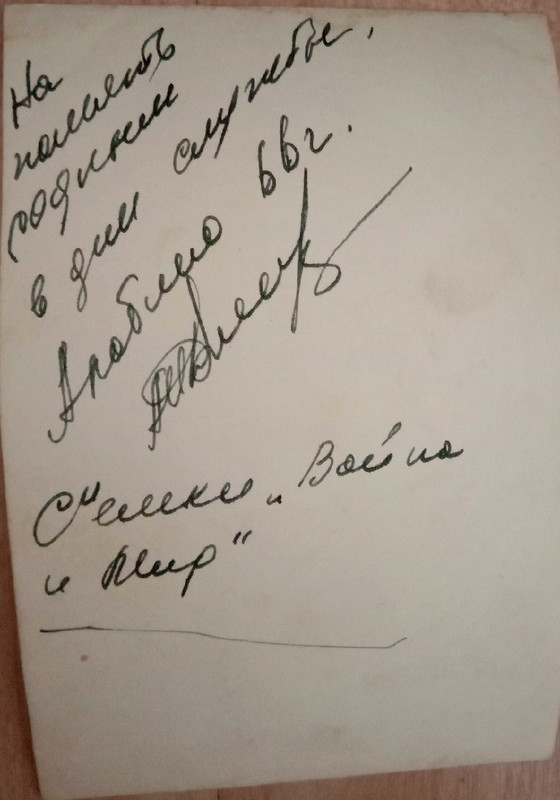 На
память
родным
в дни службы.
Алабино 66г.
Съемки „Война
и Мир"